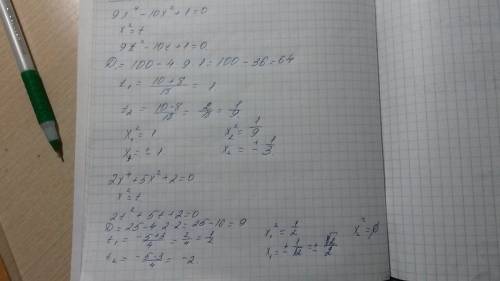 9x⁴-10x²+1=0
x²=t
9t²-10t+1=0
D=100-4·9·1=100-36=64
t₁=(10+8)/18=1
t₂=(10-8)/18=2/18=1/9
x₁²=1 x₂²=1/9
x₁=±1 x₂=±1/3
2x⁴+5x²+2=0
x²=t
2t²+5t+2=0
D=25-4·2·2=25-16=9
t₁=(-5+3)/4=2/4=1/2
t₂=(-5-3)/4=-2
x₁²=1/2 x₂²=∅
x₁=±1/√2=±√2/2